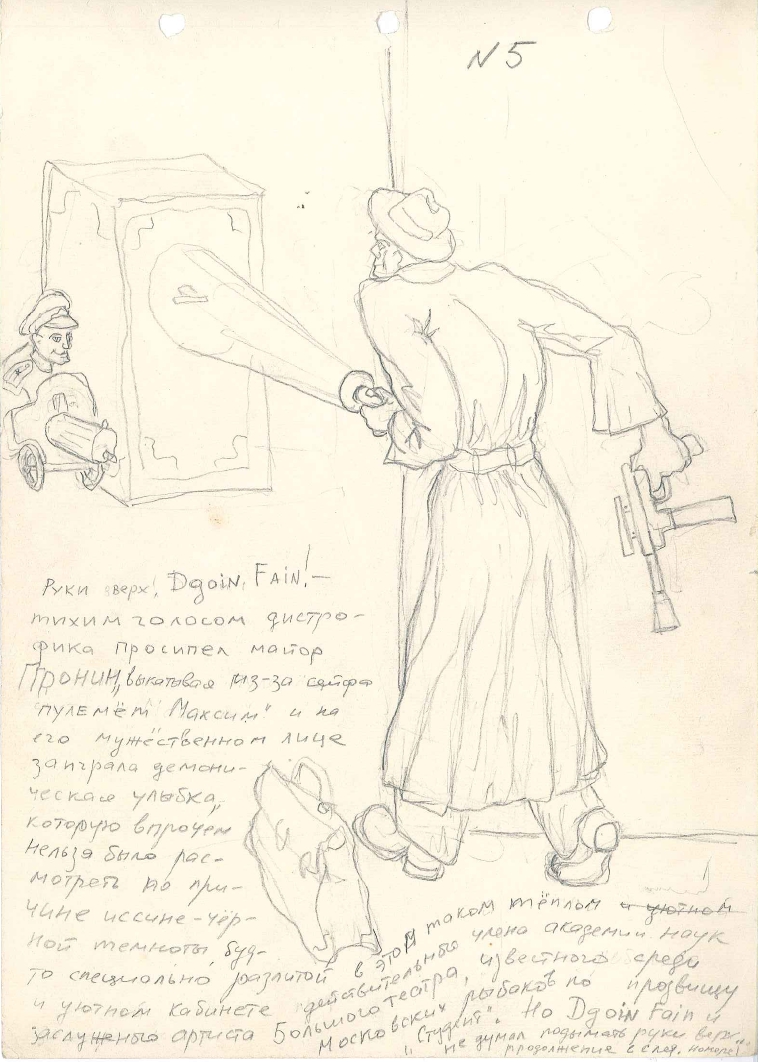 N 5
Руки вверх! Dgoin Fain! —
тихим голосом дистро-
фика просипел майор
Пронин, выкатывая из-за сейфа
"пулемёт Максим" и на
его мужественном лице
заиграла демони-
ческая улыбка,
которую впрочем
нельзя было рас-
мотреть по при-
чине иссине-чёр-
ной темноты, буд-
то специально разлитой в этом таком тёплом и уютном
и уютном кабинете действительного члена академии наук
заслуженого артиста Большого театра, известного среди
московских рыбаков по прозвищу
"Студент". Но Dgoin Fain и
не думал подымать руки верх.
продолжение в след. номере"